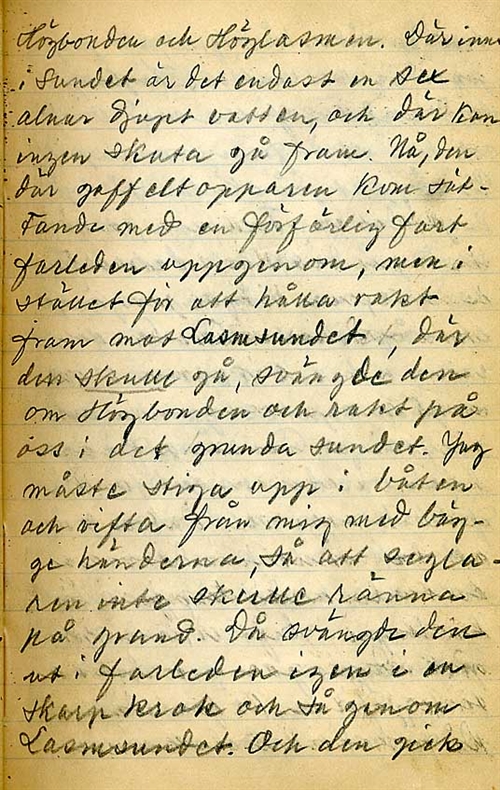 Högbonden och Höglasmen. Där inne
i sundet är det endast en sex
alnar djupt vatten, och där kan
ingen skuta gå fram. Nå, den
där gaffeltopparen kom sät-
tande med en förfärlig fart
farleden uppgenom, men i
stället för att hålla rakt
fram mot Lasmsundet, där
den skulle gå, svängde den
om Högbonden och rakt på
oss i det grunda sundet. Jag
måste stiga upp i båten
och vifta från mig med båg-
ge händerna, så att segla-
ren inte skulle ränna
på grund. Då svängde den
ut i farleden igen i en
skarp krok och så genom
Lasmsundet. Och den gick